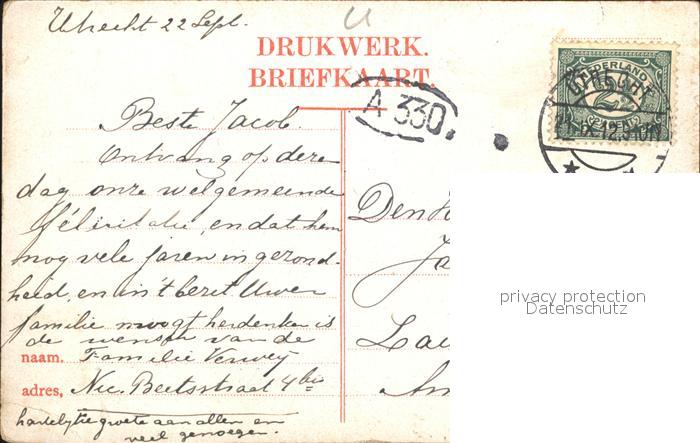 Utrecht 22 Sept.
DRUKWERK.
BRIEFKAART.
A 330.
NEDERLAND
UTRECHT
Beste Jacob.
Ontvang op deze
dag onze welgemeende
félicitatie, en dat hem
nog vele jaren in gezond-
heid, en in 't bezit Uwer
familie moogt herdenken is
de wensch van de
naam. Familie Verweij
adres, Nic. Beetsstraat 4 bis
hartelijke groete aan allen en
veel genoegen.
Den H
Ja
Lau
Am
privacy protection
Datenschutz